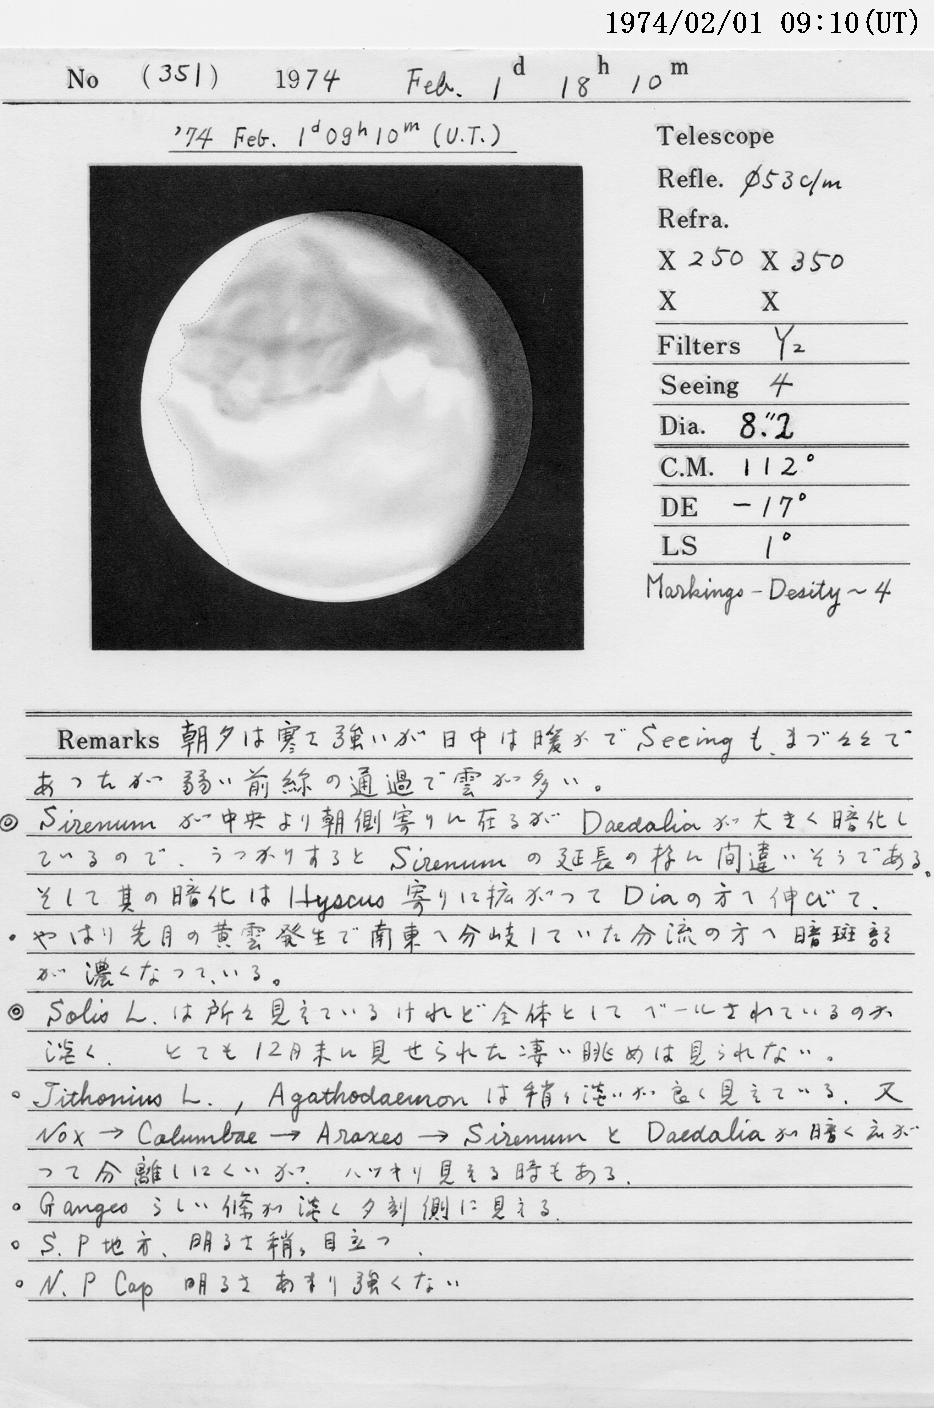 1974/02/01 09:10(UT)
No (351) 1974 Feb. 1d 18h 10m
'74 Feb. 1d 09h 10m (U.T.)
Telescope
Refle. φ53c/m
Refra.
X 250 X 350
X X
Filters Y2
Seeing 4
Dia. 8."2
C.M. 112°
DE -17°
LS 1°
Markings - Desity ~ 4
Remarks 朝夕は寒さ強いが日中は暖かでSeeingも、まづまづで
あったが弱い前線の通過で雲が多い。
◎ Sirenum が中央より朝側寄りに在るが Daedalia が大きく暗化し
ているので、うっかりすると Sirenum の延長の様に間違いそうである。
そして其の暗化は Hyscus 寄りに拡がって Diaの方へ伸びて、
・やはり先月の黄雲発生で南東へ分岐していた分流の方へ暗斑部
が濃くなっている。
◎ Solis L. は所々見えているけれど全体としてベールされているのか
淡く、 とても12月末に見せられた凄い眺めは見られない。
○ Tithonius L. , Agathodaemon は稍々淡いが良く見えている、又
Nox → Columbae → Araxes → Sirenum と Daedalia が暗く広が
って分離しにくいが、ハッキリ見える時もある。
○ Ganges らしい條が淡く夕刻側に見える。
○ S. P 地方、明るさ稍々目立つ、
○ N. P Cap 明るさあまり強くない